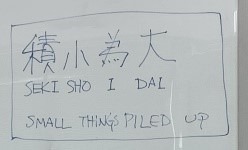 積小為大
SEKI SHO I DAI
SMALL THINGS PILED UP